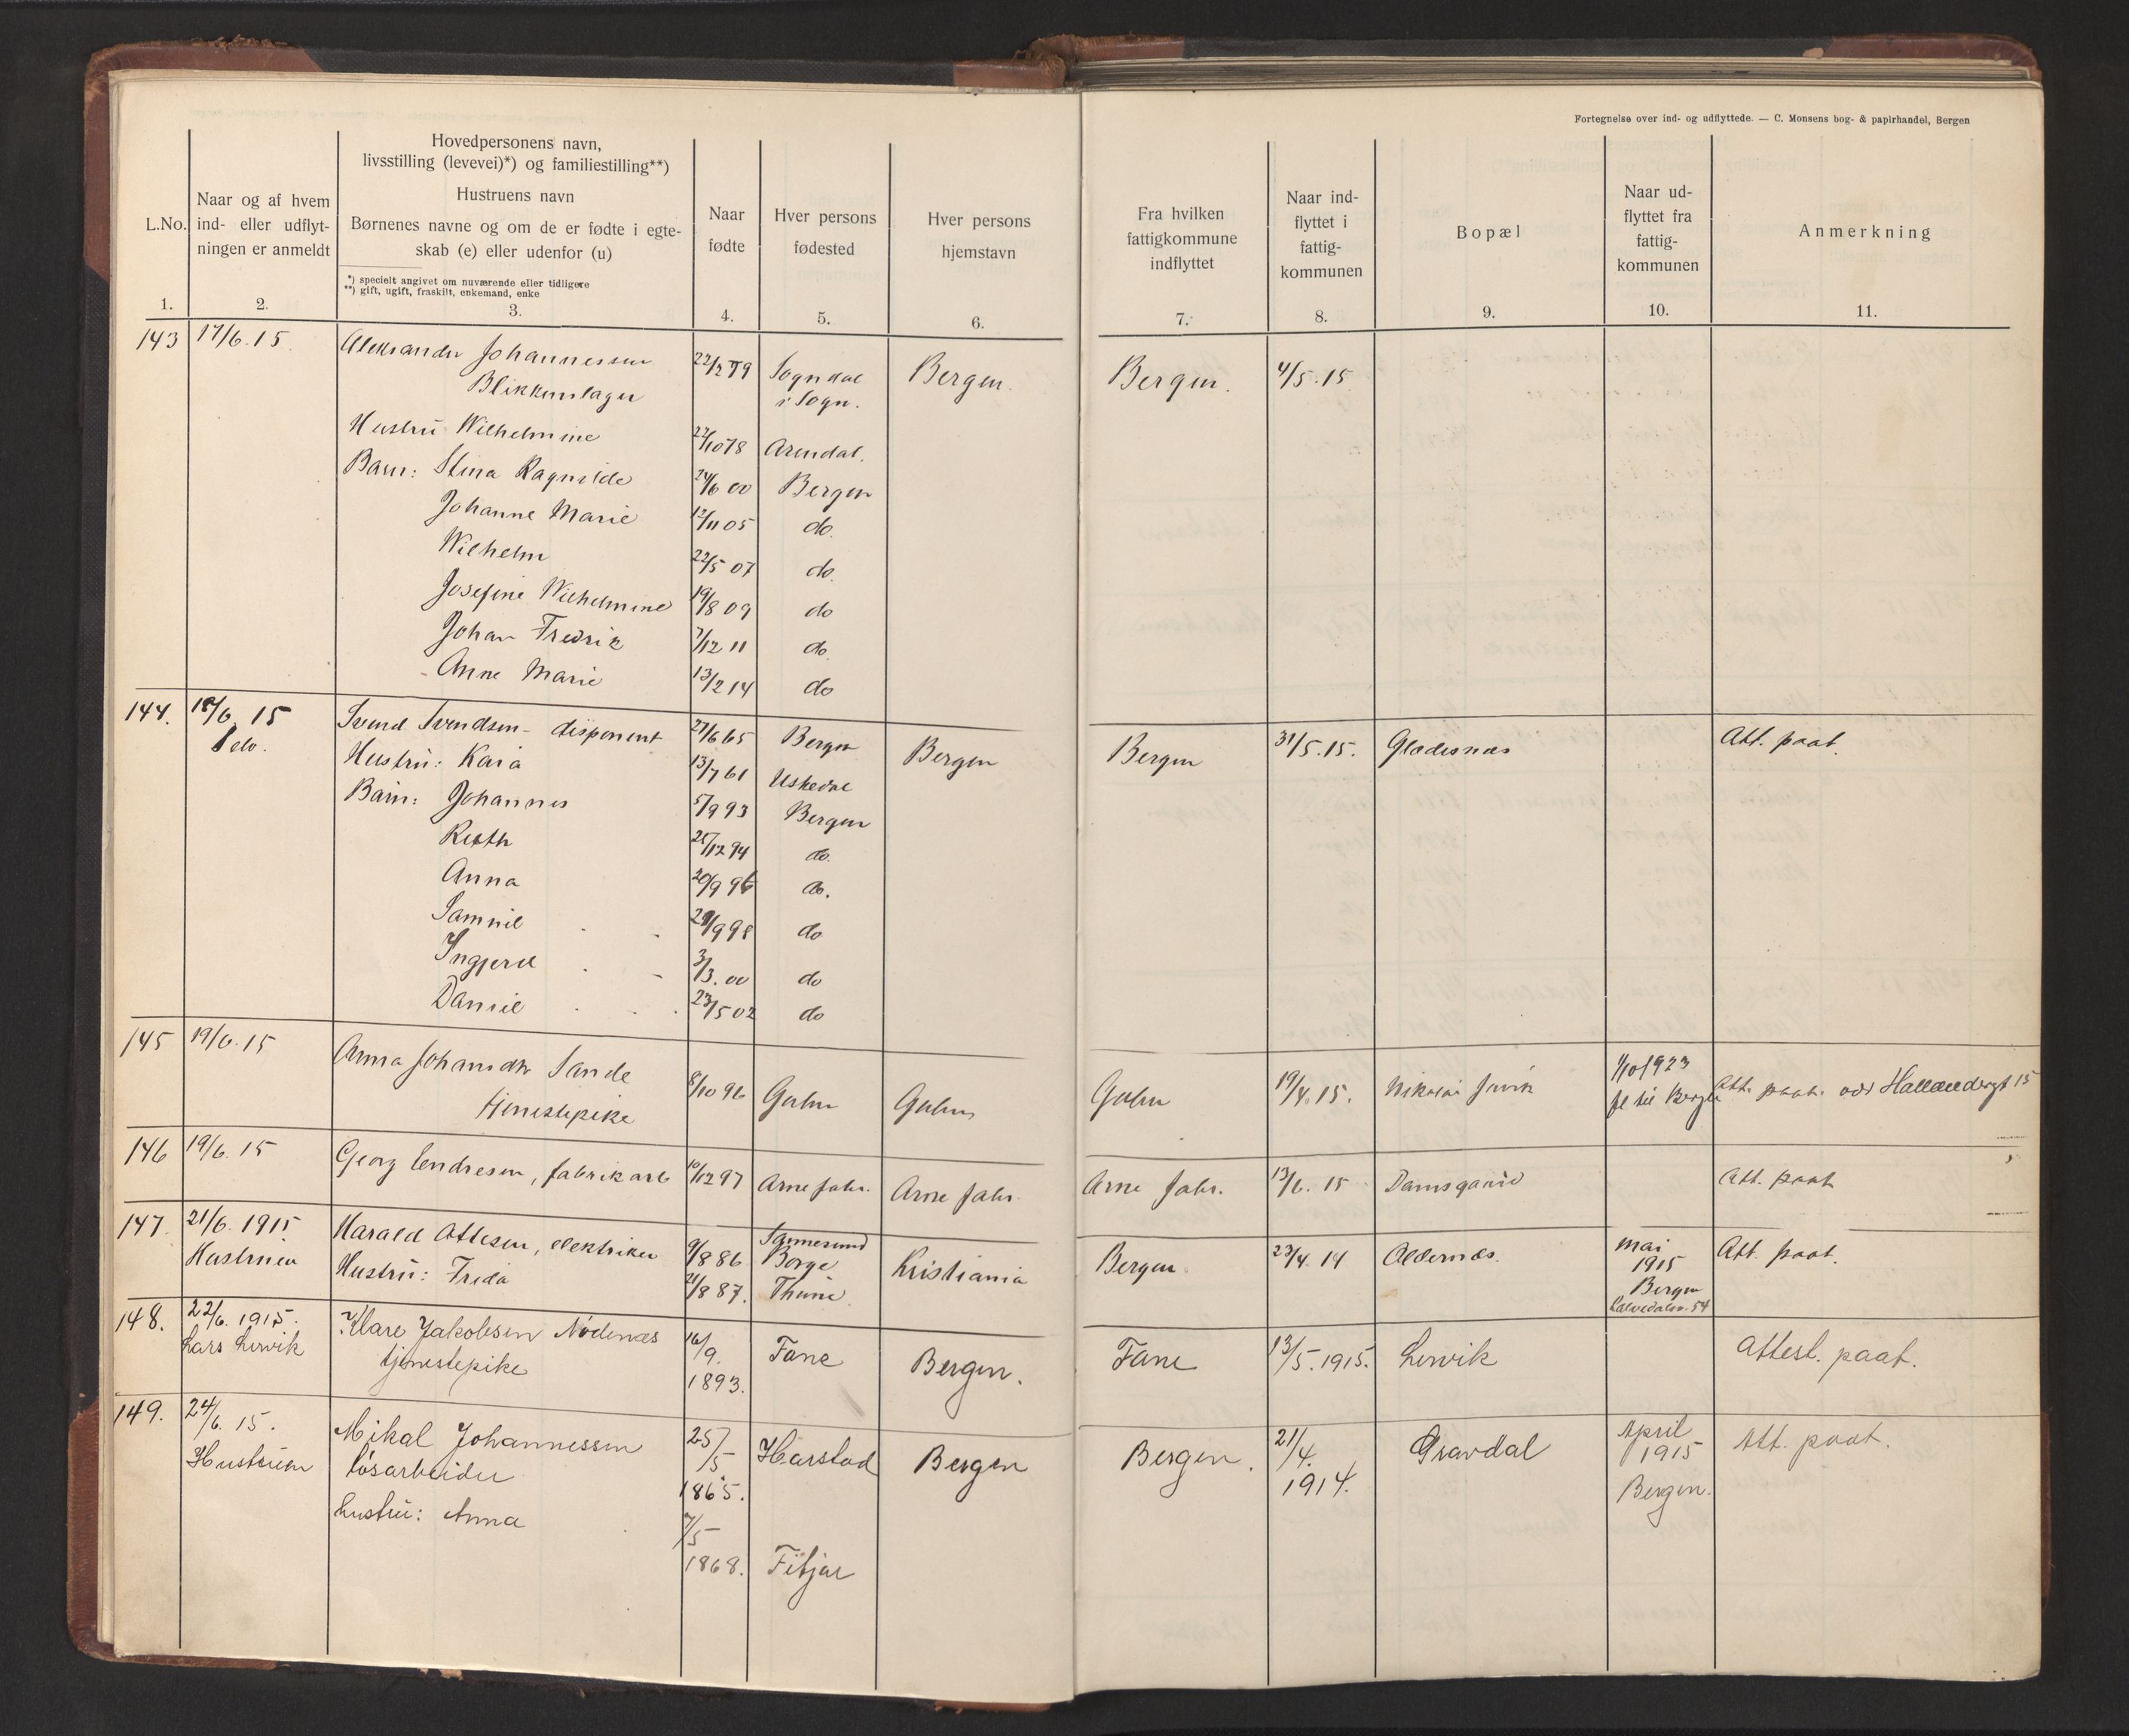 Fortegnelse over ind- og udflyttede. — C. Monsens bog- & papirhandel, Bergen
L.No.
1.
Naar og af hvem
ind- eller udflyt-
ningen er anmeldt
2.
Hovedpersonens navn,
livsstilling (levevei)*) og familiestilling**)
Hustruens navn
Børnenes navne og om de er fødte i egte-
skab (e) eller udenfor (u)
*) specielt angivet om nuværende eller tidligere
**) gift, ugift, fraskilt, enkemand, enke
3.
Naar
fødte
4.
Hver persons
fødested
5.
Hver persons
hjemstavn
6.
Fra hvilken
fattigkommune
indflyttet
7.
Naar ind-
flyttet i
fattig-
kommunen
8.
Bopæl
9.
Naar ud-
flyttet fra
fattig-
kommunen
10.
Anmerkning
11.
143 17/6.15 Aleksander Johannessen 22/2 79 Sogndal Bergen. Bergen. 4/5.15
Blikkenslager i Sogn.
Hustru Wilhelmine 22/10 78 Arendal.
Barn: Stina Ragnilde 24/6 00 Bergen
Johanne Marie 12/11 05 do.
Wilhelm 22/5 07 do.
Josefine Wilhelmine 19/8 09 do
Johan Fredrik 7/12 11 do.
Anne Marie 13/2 14 do
144. 18/6 15 Svend Svendsen - disponent 27/6 65 Bergen Bergen Bergen 31/5.15. Gladesnæs Att. paat.
Selv. Hustru: Kaia 13/7 61 Uskedal
Barn: Johannes 5/9 93 Bergen
Ruth 25/12 94 do.
Anna 20/9 96 do.
Samuel 29/9 98 do
Ingjerd 3/3.00 do
Daniel 23/5 02 do
145 19/6.15 Anna Johansdtr Sande 8/10 96 Gulen Gulen Gulen 19/4.15. Nikolai 1/10 1923 Att. paat.
tjenestepike til Bergen
146 19/6.15 Georg Endresen, fabrikarb 10/12 97 Arne Arne Arne 13/6.15 Damsgaard Att. paat
147. 21/6.1915 Harald Ottesen, elektriker 9/8 86 Sannesund Borge Kristiania Bergen 23/4.14 Oldernæs. mai 1915 Att. paat.
Hustruen Hustru: Frida 21/8 87. Thune Bergen
148. 22/6.1915. Klare Jakobsen Nødenæs 16/9. 1893. Fane Bergen. Fane 13/5.1915. Lervik Attest. paat.
Lars Lervik tjenestepike
149. 24/6.15. Mikal Johannessen 25/5 1865. Harstad Bergen Bergen. 21/4. 1914. Gravdal April 1915 Bergen. Att. paat.
Hustruen løsarbeider
hustru: Anna 7/5 1868. Fitjar